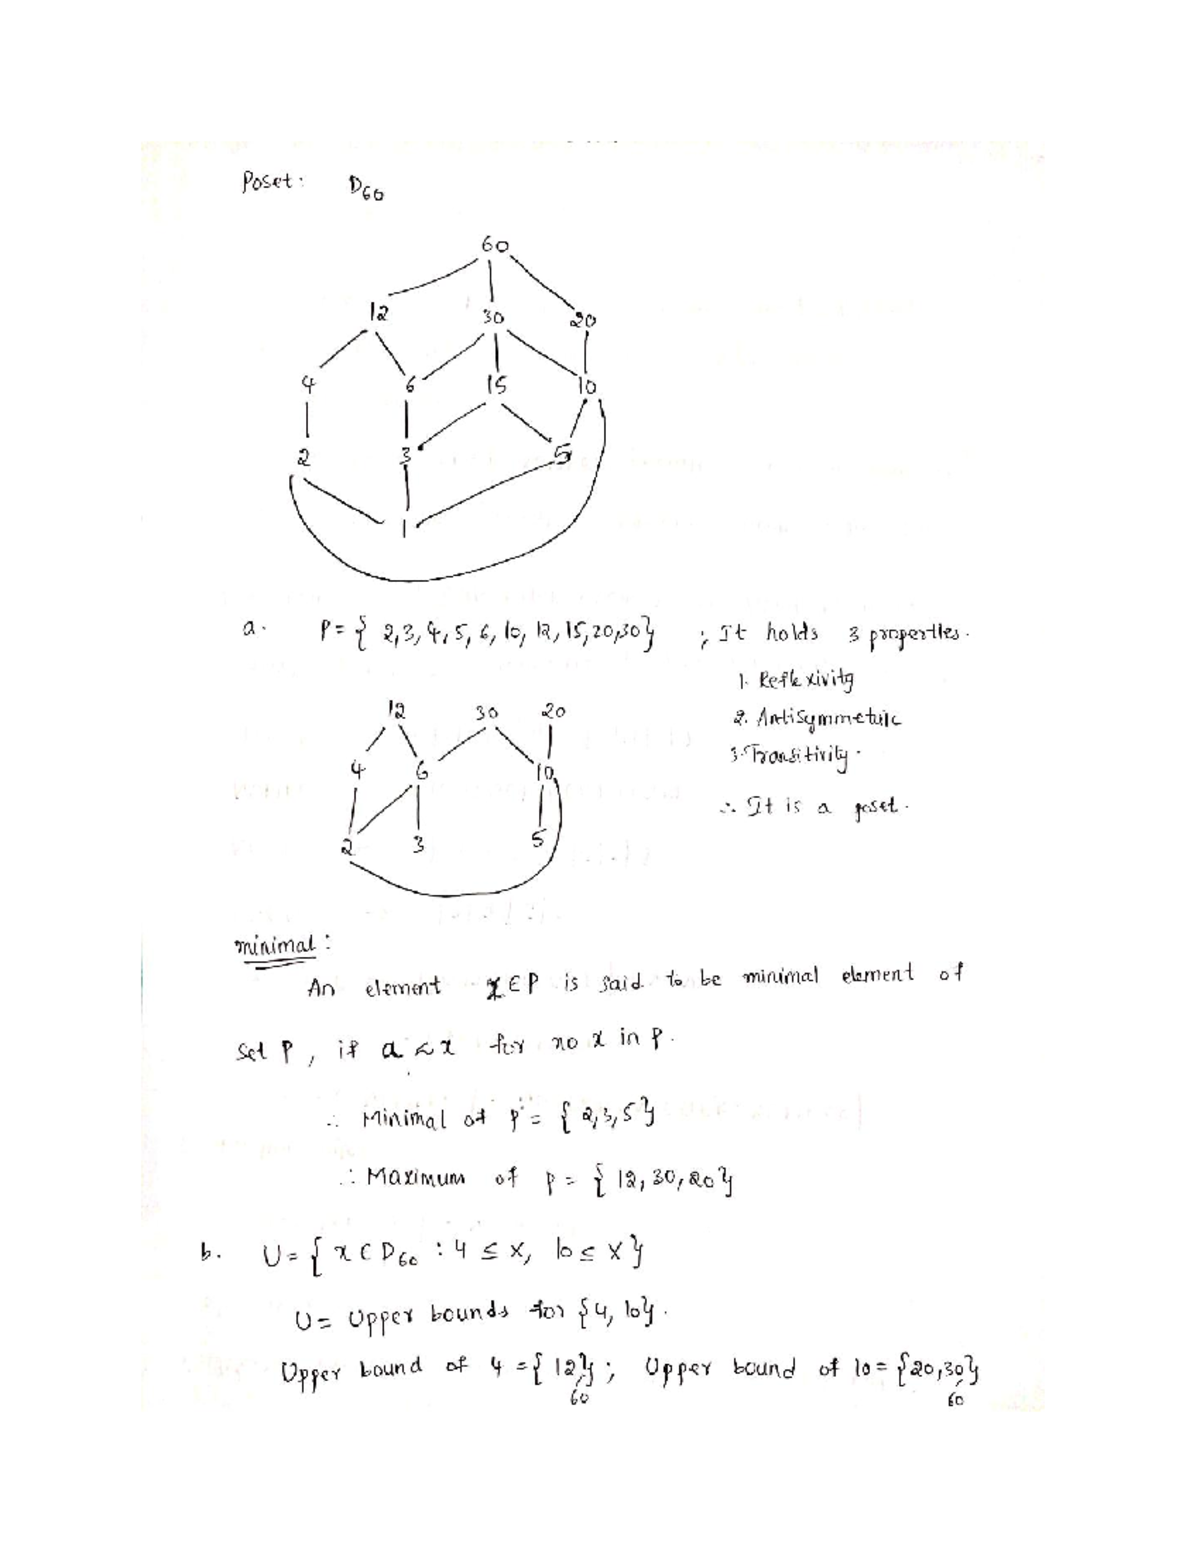 Poset: D60
60
12 30 20
4 6 15 10
2 3 5
1
a. P = { 2,3,4,5,6,10,12,15,20,30} ; It holds 3 properties.
1. Reflexivity
2. Antisymmetric
3. Transitivity.
∴ It is a poset.
12 30 20
4 6 10
2 3 5
minimal:
An element x ∈ P is said to be minimal element of
set P, if a < x for no x in P.
∴ Minimal of P = { 2,3,5}
∴ Maximum of P = { 12,30,20}
b. U = { x ∈ D60 : 4 ≤ x, 10 ≤ x}
U = Upper bounds for {4, 10}.
Upper bound of 4 = { 12,}; Upper bound of 10 = {20,30,}
60 60